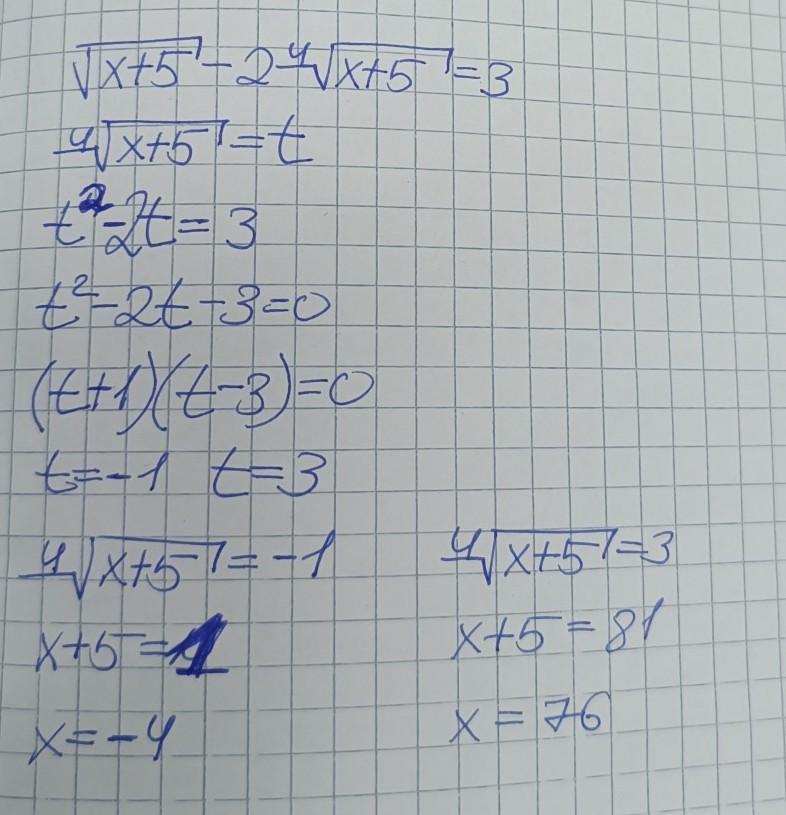 √(x+5) - 2⁴√(x+5) = 3
⁴√(x+5) = t
t² - 2t = 3
t² - 2t - 3 = 0
(t+1)(t-3) = 0
t = -1 t = 3
⁴√(x+5) = -1 ⁴√(x+5) = 3
x+5 = 1 x+5 = 81
x = -4 x = 76